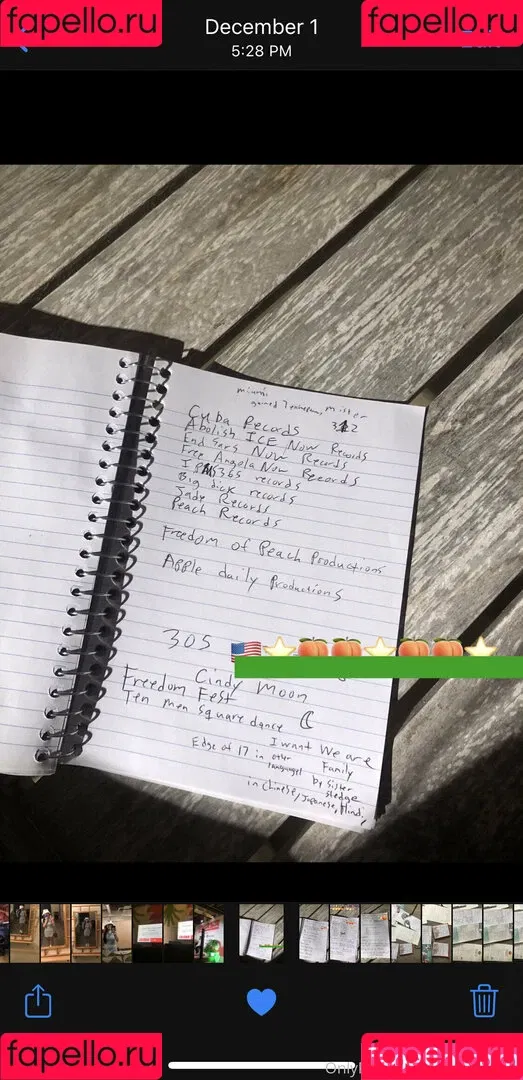 fapello.ru
fapello.ru
December 1
5:28 PM
miami
gained Tennessee, Mister
Cuba Records 312
Abolish ICE Now Records
End Sars Now Records
Free Angela Now Records
records
Big dick records
Jade Records
Peach Records
Freedom of Peach Productions
Apple daily Productions
305
Cindy Moon
Freedom Fest
Ten men square dance
I want We are
Family
Edge of 17 in other
languages
by Sister
Sledge
in Chinese, Japanese, Hindi,
fapello.ru
fapello.ru